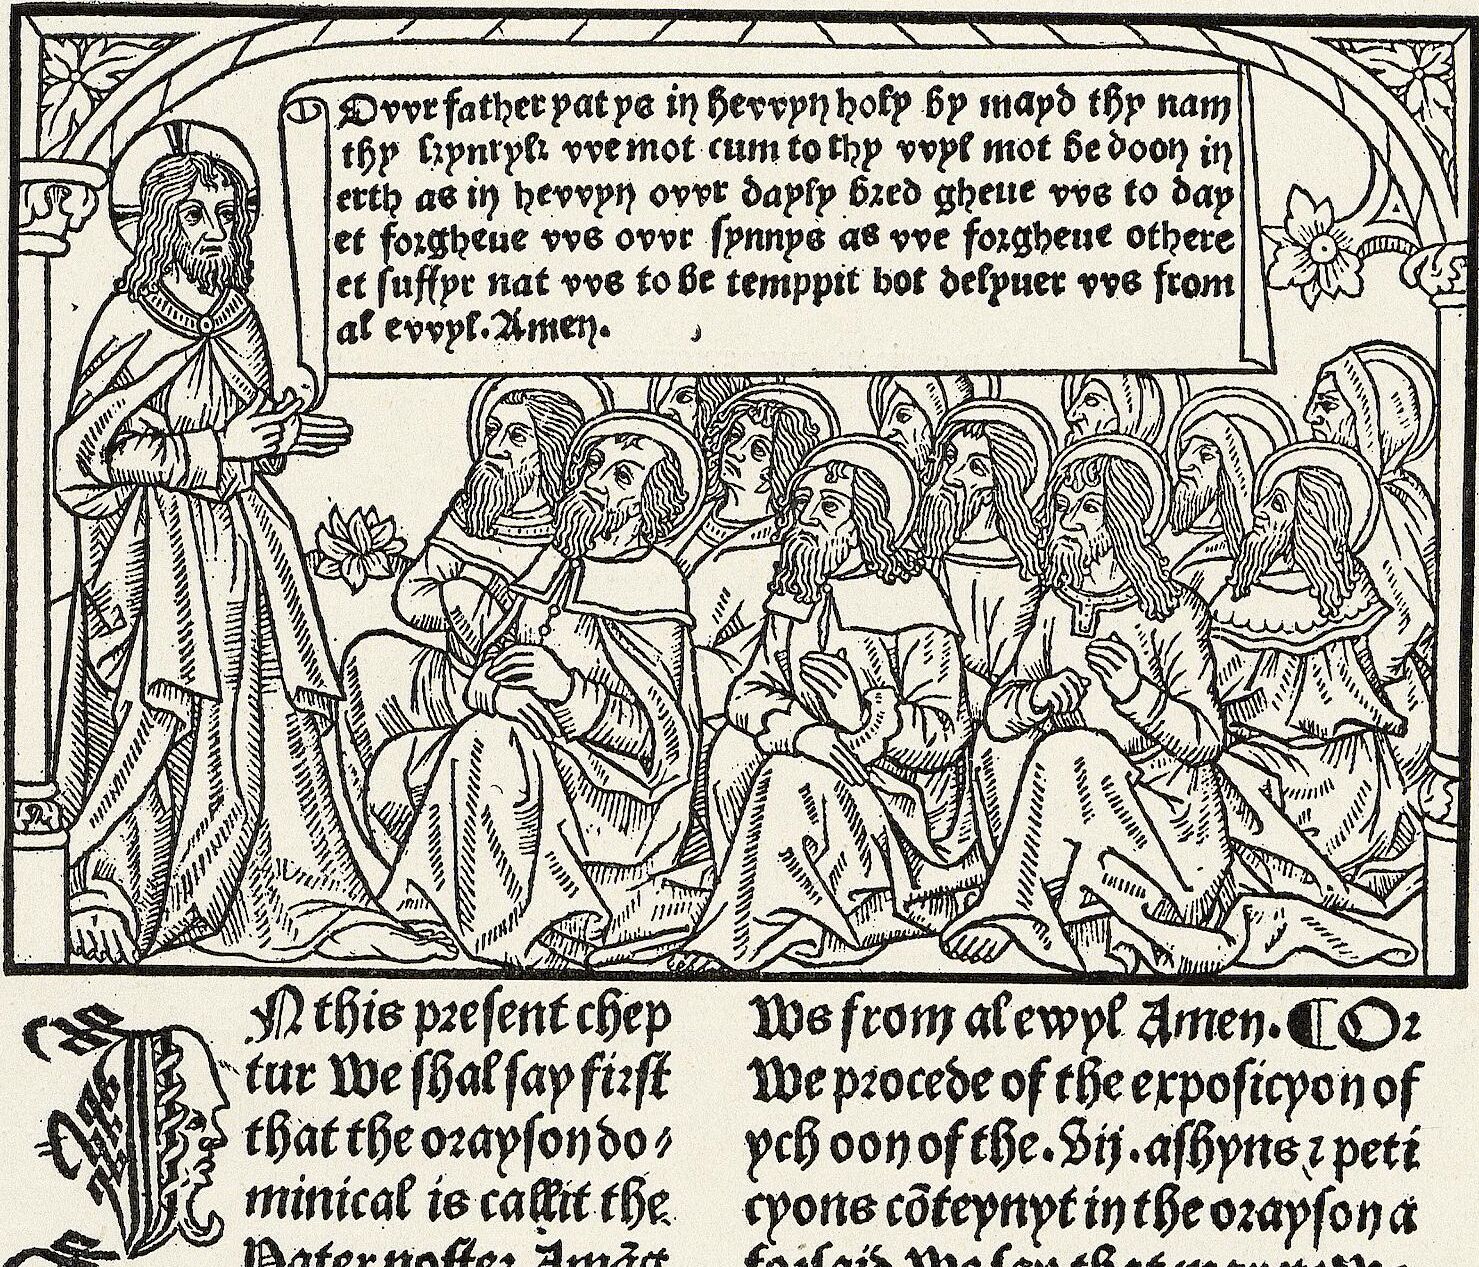 Ovvr father yat ys in hevvyn holy by mayd thy nam
thy kynryk vve mot cum to thy vvyl mot be doon in
erth as in hevvyn ovvr dayly bred gheue vvs to day
et forgheue vvs ovvr synnys as vve forgheue othere
et suffyr nat vvs to be temppit bot delyuer vvs from
al evvyl. Amen.
IN this present chep
tur We shal say first
that the orayson do⸗
minical is callit the
Pater noster. Amãg
Ws from al ewyl Amen. ¶ Or
We procede of the exposicyon of
ych oon of the. Vij. ashyns ⁊ peti
cyons cõteynyt in the orayson a
forsaid We say that